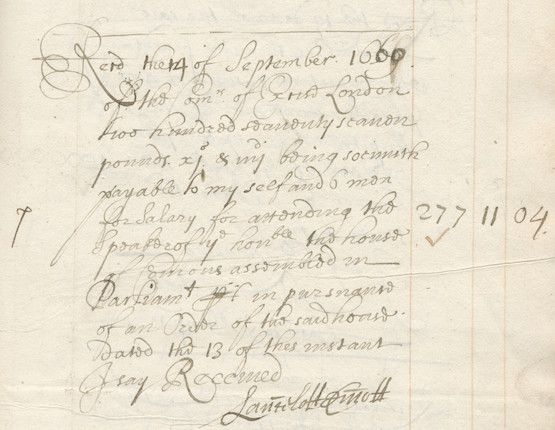 Recd the 14 of September. 1660.
of the Comrs. of Excise London
two hundred seaventy seaven
pounds. xjs. & iiijd being soe much
payable to my self and 6 men
for Salary for attending the 277 11 04.
Speaker of ye. honble the house
of Comons assembled in
Parliamt in pursuance
of an Order of the said house.
Dated the 13 of this instant
I say Received